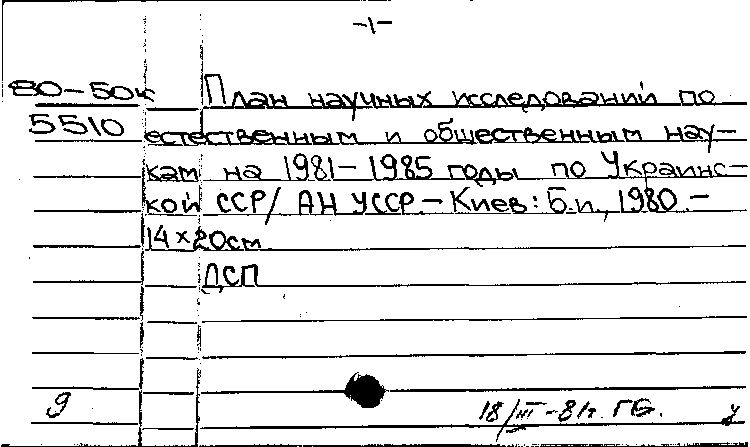 -1-
80-50к План научных исследований по
5510 естественным и общественным нау-
кам на 1981-1985 годы по Украинс-
кой ССР/ АН УССР.- Киев: Б.и., 1980.-
14×20см.
ДСП
9 18/III-81г. ГБ. у